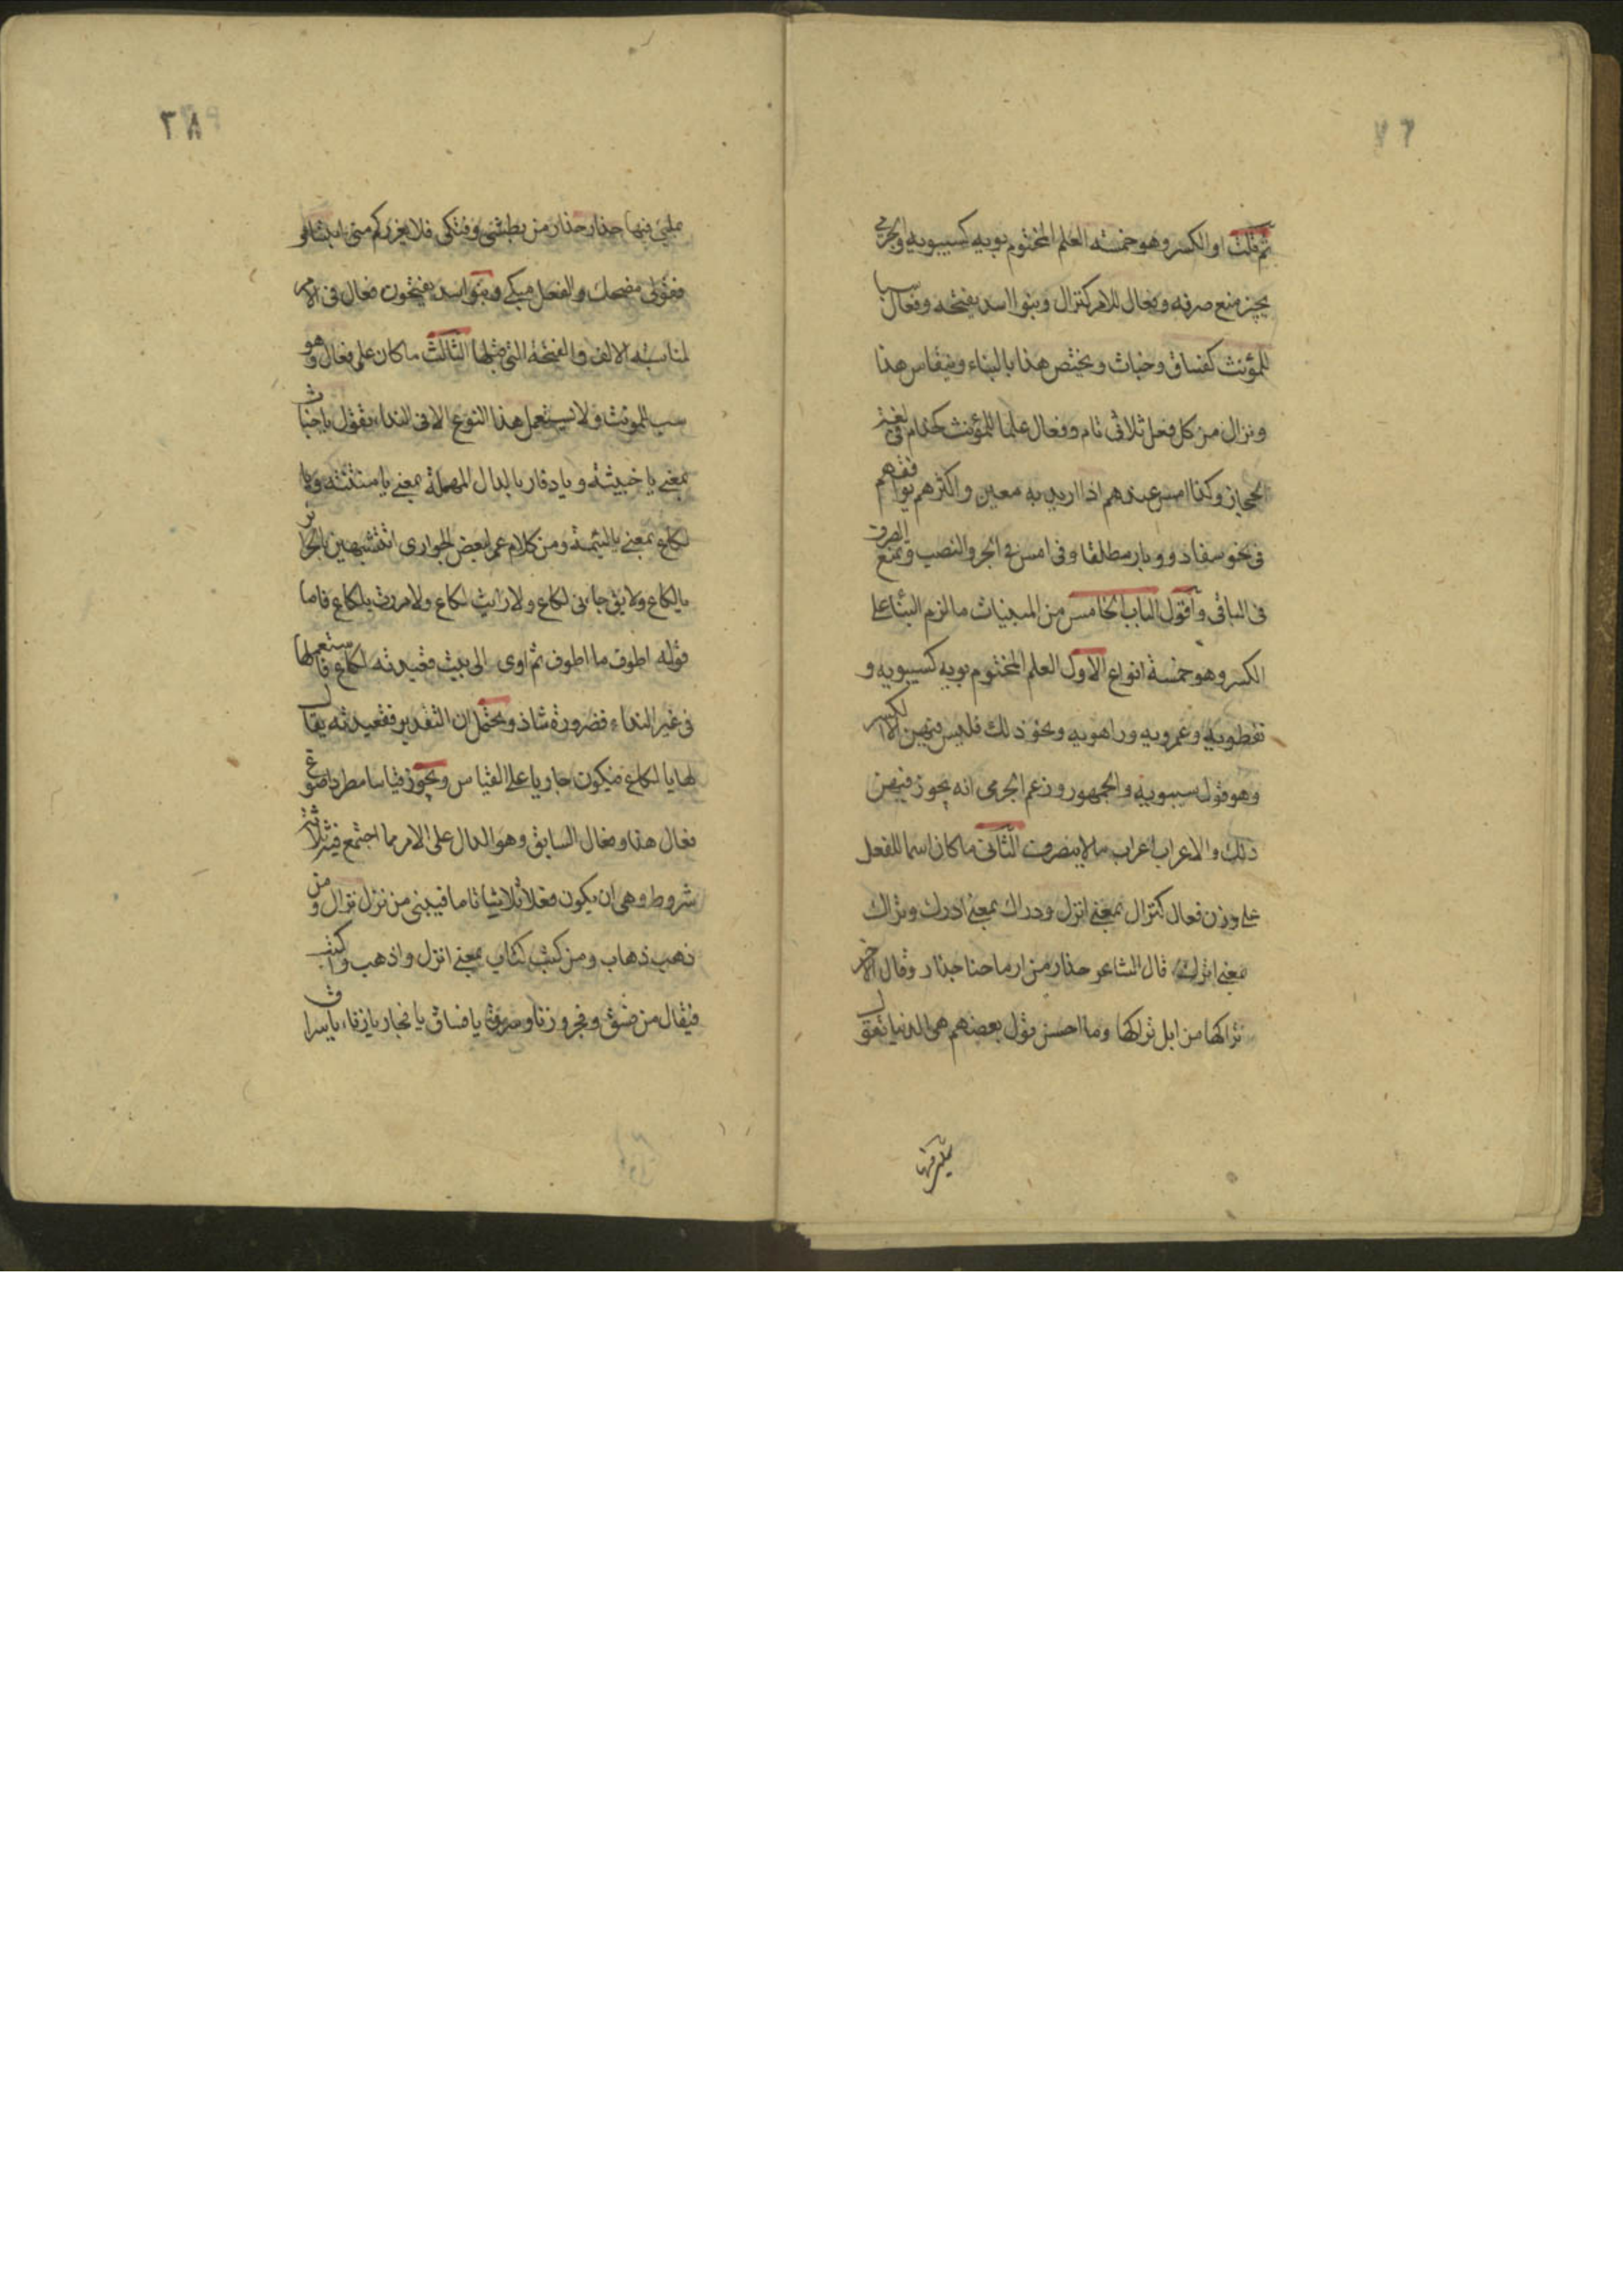 ثم قلت او الكسر وهو خمسة العلم المختوم بويه كسيبويه والجرمي
يجيز منع صرفه وفعال للامر كنزال وبنوا اسد يفتحه وفعال سبا
للمؤنث كفساق وخباث ويختص هذا بالنداء وينقاس هذا
ونزال من كل فعل ثلاثى تام وفعال علما للمؤنث كحذام فى لغة
الحجاز وكذا امس عندهم اذا اريد به معين واكثرهم يوافقهم
فى نحو سفار ووبار مطلقا وفى امس فى الجر والنصب ويمنع الصرف
فى الباقى واقول الباب الخامس من المبنيات ما لزم البناء على
الكسر وهو خمسة انواع الاول العلم المختوم بويه كسيبويه و
نفطويه وعمرويه وراهويه ونحو ذلك فليس فيهن الا الكسر
وهو قول سيبويه والجمهور وزعم الجرمى انه يجوز فيهن
ذلك والاعراب اعراب ما لا ينصرف الثانى ما كان اسما للفعل
على وزن فعال كنزال بمعنى انزل ودراك بمعنى ادرك وتراك
بمعنى اترك قال الشاعر حذار من ارماحنا حذار وقال الآخر
تراكها من ابل تراكها وما احسن قول بعضهم هى الدنيا تقول
بملئ فيها حذار حذار من بطشى وفتكى فلا يغرركم منى ابتسام
فقولى مضحك والفعل مبكى وبنو اسد يفتحون فعال فى الامر
لمناسبة الالف والفتحة التى قبلها الثالث ما كان على فعال وهو
سب للمونث ولا يستعمل هذا النوع الا فى النداء فتقول يا خباث
بمعنى يا خبيثة ويا دفار بالدال المهملة بمعنى يا منتنة ويا
لكاع بمعنى يا لئيمة ومن كلام عمر لبعض الجوارى اتتشبهين بالحرائر
يا لكاع ولا يق جاءنى لكاع ولا رايت لكاع ولا مررت بلكاع فاما
قوله اطوف ما اطوف ثم اوى الى بيت قعيدته لكاع فاستعملها
فى غير النداء فضرورة شاذ ويحتمل ان التقدير قعيدته يقال
لها يا لكاع فيكون جاريا على القياس ويجوز قياسا مطردا صوغ
فعال هذا وفعال السابق وهو الدال على الامر مما اجتمع فيه ثلاثة
شروط وهى ان يكون فعلا ثلاثيا تاما فيبنى من نزل نزال ومن
ذهب ذهاب ومن كتب كتاب بمعنى انزل واذهب واكتب
فيقال من فسق وفجر وزنا وسرق يا فساق يا فجار يا زناء يا سراق